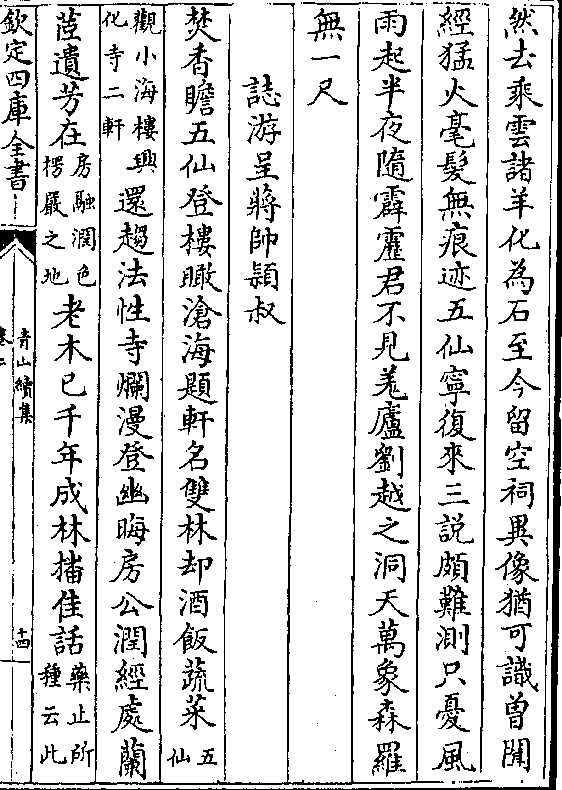 然去乘雲諸羊化為石至今留空祠異像猶可識曾聞
經猛火毫髮無痕迹五仙寧復來三説頗難測只憂風
雨起半夜隨霹靂君不見羗廬劉越之洞天萬象森羅
無一尺
誌游呈蔣帥頴叔
焚香瞻五仙登樓瞰滄海題軒名雙林却酒飯蔬菜五仙
觀小海樓興化寺二軒還趨法性寺爛漫登幽晦房公潤經處蘭
茝遺芳在房融潤色楞嚴之地老木已千年成林播佳話藥止所種云此
欽定四庫全書
青山續集
卷二
十四